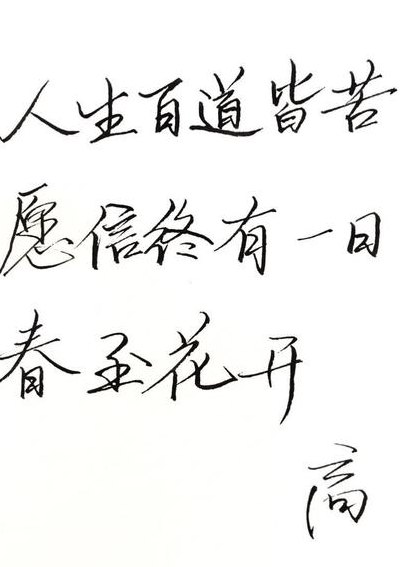 人生百道皆苦
愿信终有一日
春至花开
高